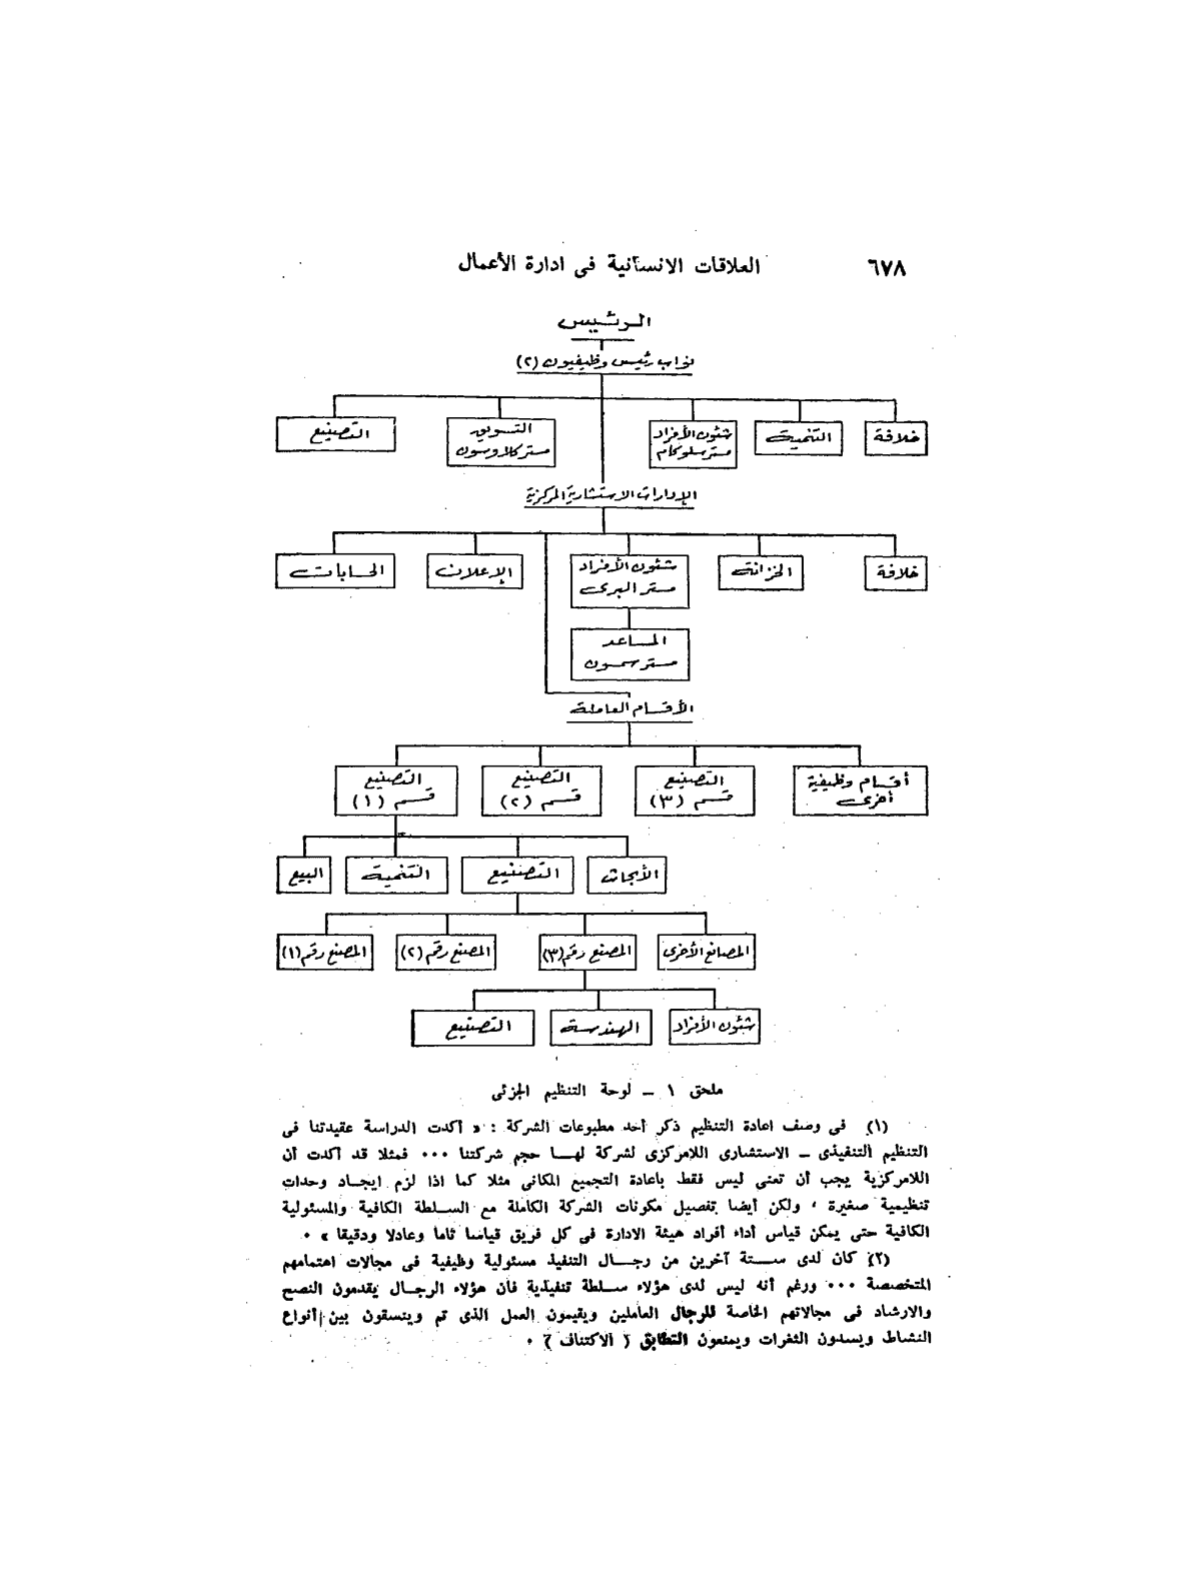 ٦٧٨ العلاقات الانسانية فى ادارة الأعمال
الرئيس
نواب رئيس وظيفيون (٢)
خلافة التنمية شئون الأفراد التسويق التصنيع
مستر سلوكام مستر كلاوسون
الإدارات الاستشارية المركزية
خلافة الخزانة شئون الأفراد الإعلان الحسابات
مستر البرى
المساعد
مستر سمسون
الأقسام العاملة
أقسام وظيفية التصنيع التصنيع التصنيع
أخرى قسم (٣) قسم (٢) قسم (١)
الأبحاث التصنيع التنمية البيع
المصانع الأخرى المصنع رقم (٣) المصنع رقم (٢) المصنع رقم (١)
شئون الأفراد الهندسة التصنيع
ملحق ١ ــ لوحة التنظيم الجزئى
(١) فى وصف اعادة التنظيم ذكر أحد مطبوعات الشركة : « أكدت الدراسة عقيدتنا فى
التنظيم التنفيذى ــ الاستشارى اللامركزى لشركة لهــا حجم شركتنا ٠٠٠ فمثلا قد أكدت أن
اللامركزية يجب أن تعنى ليس فقط باعادة التجميع المكانى مثلا كما اذا لزم ايجــاد وحدات
تنظيمية صغيرة ، ولكن أيضا بتفصيل مكونات الشركة الكاملة مع الســلطة الكافية والمسئولية
الكافية حتى يمكن قياس أداء أفراد هيئة الادارة فى كل فريق قياسا تاما وعادلا ودقيقا » ٠
(٢) كان لدى ســتة آخرين من رجــال التنفيذ مسئولية وظيفية فى مجالات اهتمامهم
المتخصصة ٠٠٠ ورغم أنه ليس لدى هؤلاء ســلطة تنفيذية فان هؤلاء الرجــال يقدمون النصح
والارشاد فى مجالاتهم الخاصة للرجال العاملين ويقيمون العمل الذى تم وينسقون بين أنواع
النشاط ويسدون الثغرات ويمنعون التطابق ( الاكتناف ) ٠